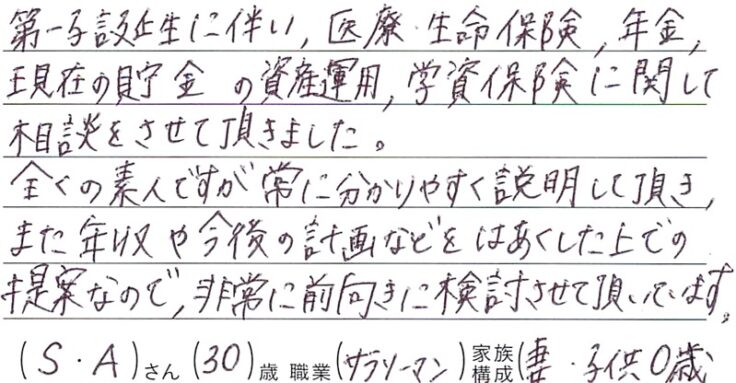 第一子誕生に伴い, 医療・生命保険, 年金,
現在の貯金の資産運用, 学資保険に関して
相談をさせて頂きました。
全くの素人ですが常に分かりやすく説明して頂き,
また年収や今後の計画などをはあくした上での
提案なので, 非常に前向きに検討させて頂いています。
(S・A)さん (30)歳 職業(サラリーマン) 家族構成(妻・子供0歳